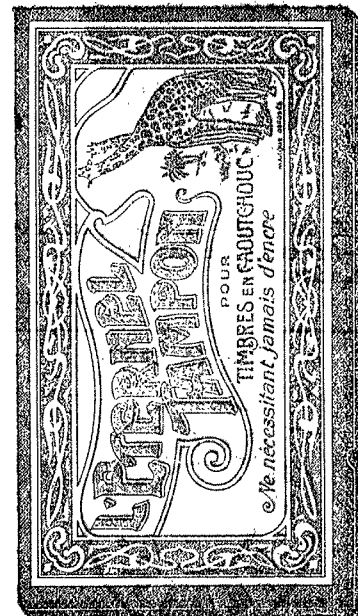 L'ETERNEL
TAMPON
POUR
TIMBRES EN CAOUTCHOUC
Ne nécessitant jamais d'encre